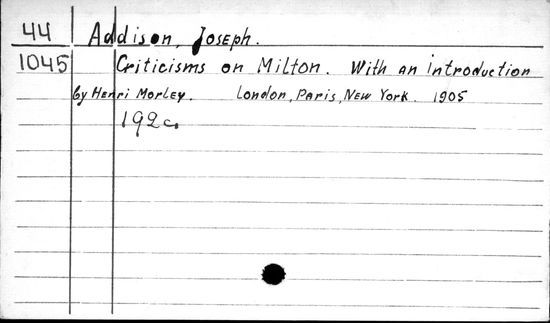 44 Addison, Joseph.
1045 Criticisms on Milton. With an introduction
by Henri Morley. London, Paris, New York. 1905
192 c.